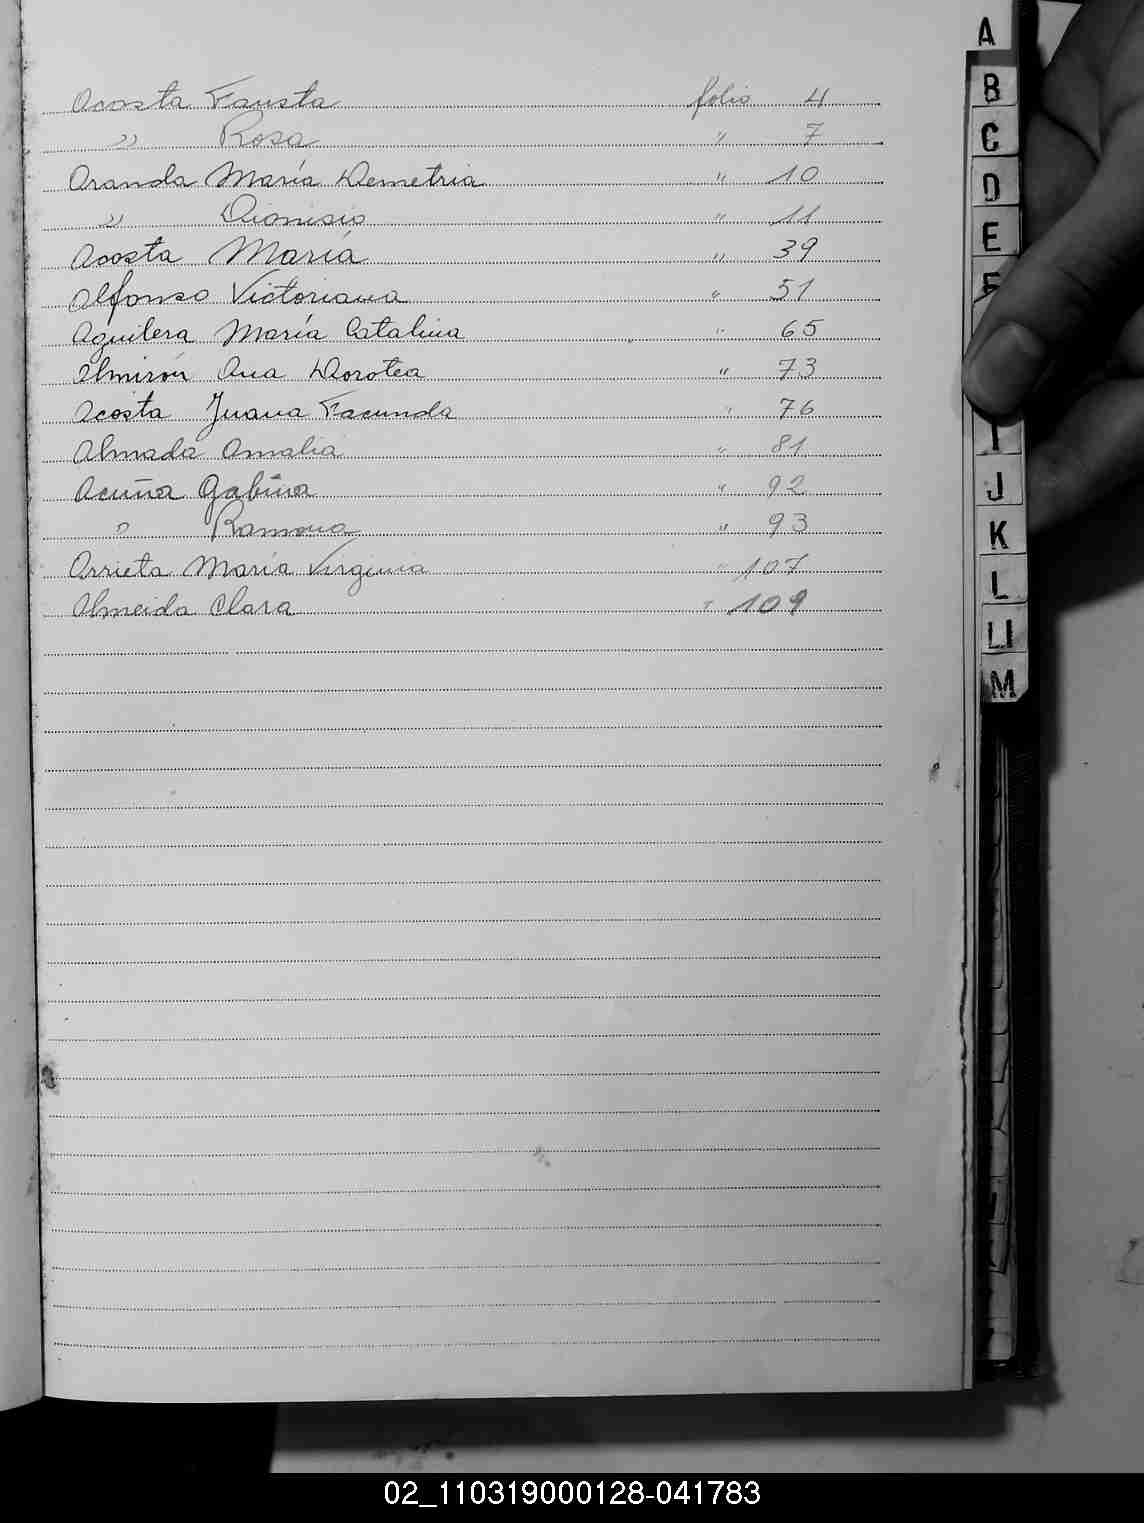 Acosta Fausta folio 4
" Rosa " 7
Aranda María Demetria " 10
" Dionisio " 11
Acosta María " 39
Alfonso Victoriana " 51
Aguilera María Catalina " 65
Almirón Ana Dorotea " 73
Acosta Juana Facunda " 76
Almada Amalia " 81
Acuña Gabina " 92
" Ramona " 93
Arrieta María Virginia " 107
Almeida Clara " 109
A
B
C
D
E
F
I
J
K
L
Ll
M
02_110319000128-041783